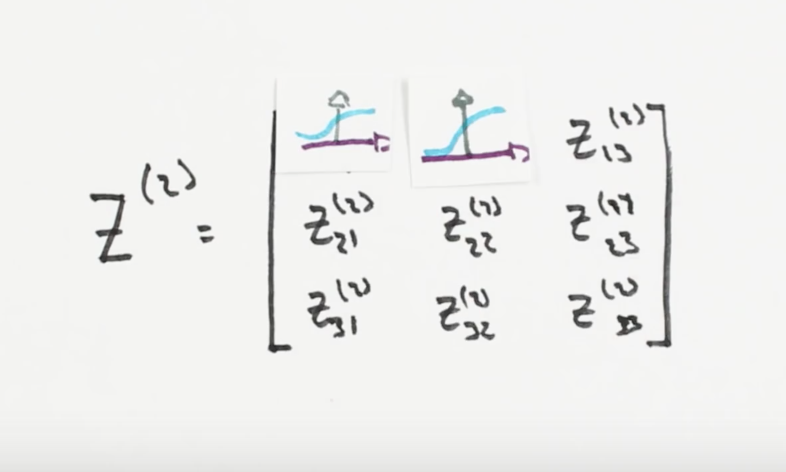 Z^(2) =
Z_13^(2)
Z_21^(2) Z_22^(2) Z_23^(2)
Z_31^(2) Z_32^(2) Z_33^(2)